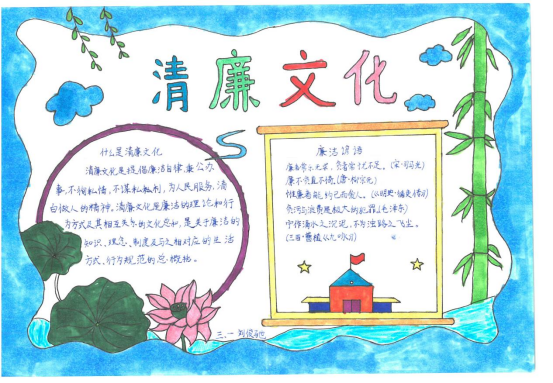 清廉文化
什么是清廉文化
清廉文化是提倡廉洁自律,秉公办
事,不徇私情,不谋私利,为人民服务,清
白做人的精神。清廉文化是廉洁的理论和行
为方式及其相互关系的文化总和,是关于廉洁的
知识、理念、制度及与之相对应的生活
方式、行为规范的总概括。
廉洁谚语
廉者常乐无求,贪者常忧不足。
廉不贪直不倚。(唐·柳宗元)
惟廉者能约己而爱人。
贪污与浪费是极大的犯罪。(毛泽东)
宁作清水之沉泥,不为浊路之飞尘。
(三国·曹植《九咏》)
三、一